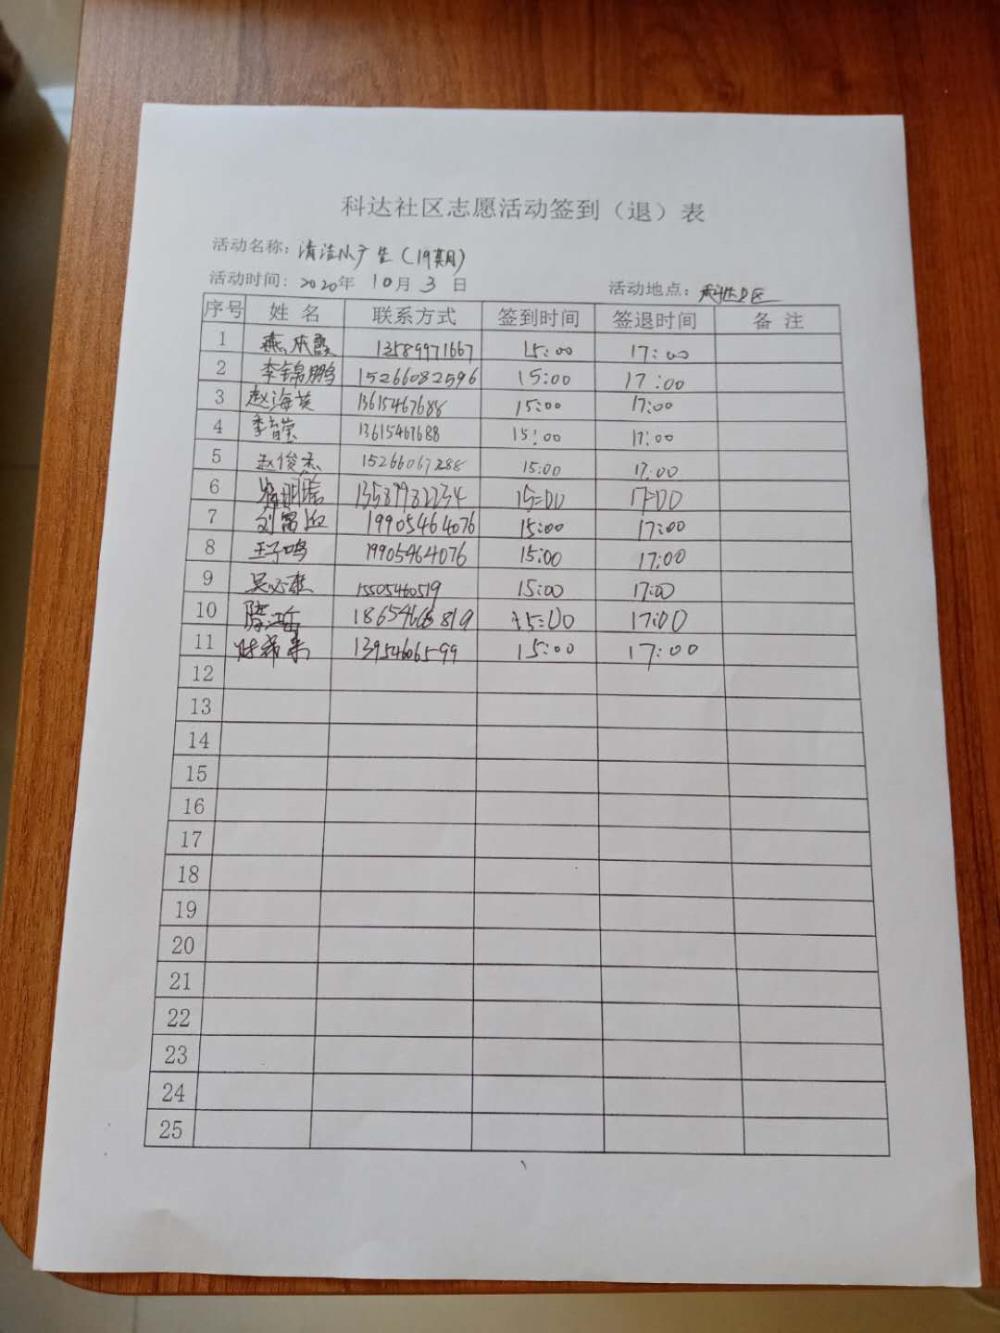 科达社区志愿活动签到（退）表
活动名称：清洁 广 （19期）
活动时间：2020年 10月 3 日 活动地点：科达社区
序号 姓 名 联系方式 签到时间 签退时间 备 注
1 燕 霞 13589971667 15:00 17:00
2 李锦鹏 15266082596 15:00 17:00
3 赵海英 13615467688 15:00 17:00
4 李 莹 13615467688 15:00 17:00
5 赵俊杰 15266067288 15:00 17:00
6 明 13589982234 15:00 17:00
7 刘富 19905464076 15:00 17:00
8 王子鸣 19905464076 15:00 17:00
9 吴必 15505460519 15:00 17:00
10 18654668819 15:00 17:00
11 13954606599 15:00 17:00
12
13
14
15
16
17
18
19
20
21
22
23
24
25